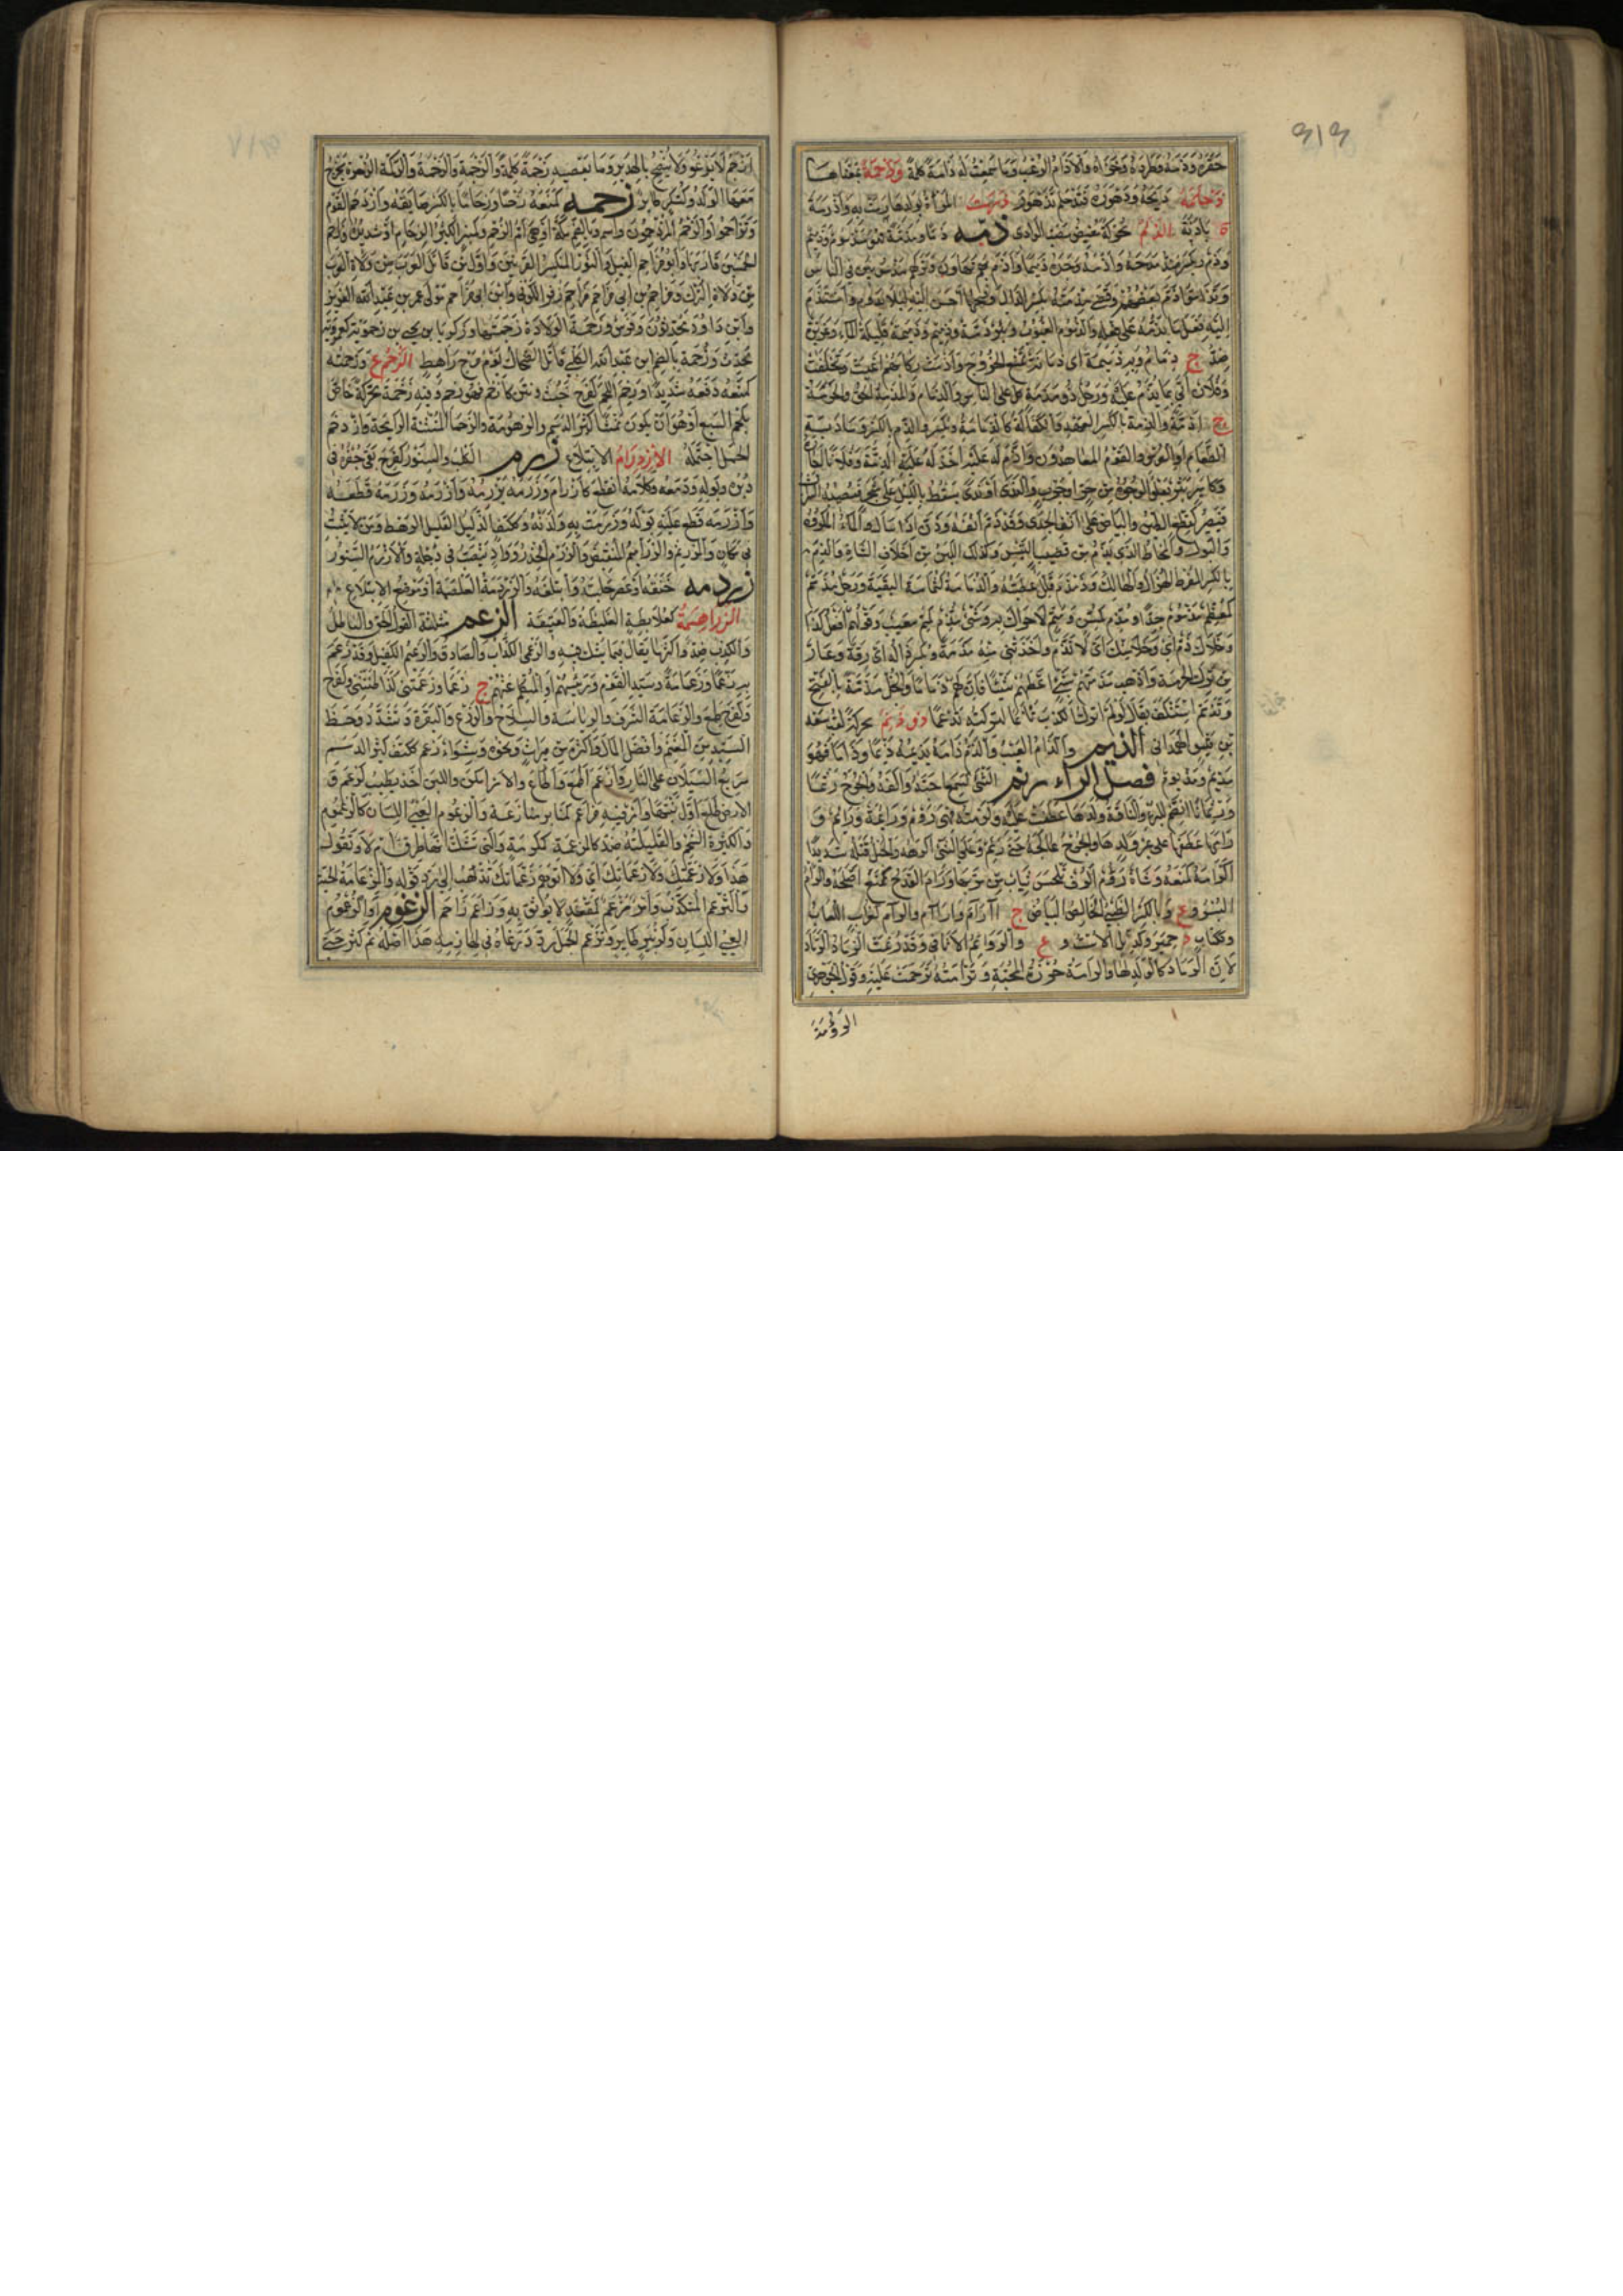 ٣١٣
حقره وذمه وطرده وخزاه والاذام الرعب وما سمعت له ذامة كلمة وذحمة بمعناها
ذحلمة ذبحه ودهوره فتذحلم تدهور ذرمت المرأة بولدها رمت به واذرمة
ة باذنة الذلم محركة مغيض مصب الوادي ذمه ذما ومذمة فهو مذموم وذميم
وذم ويكسر ضد مدحه واذمه وجده ذميما واذم بهم تهاون وتركهم مذمومين في الناس
وتذاموا ذم بعضهم وقضى مذمته بكسر الذال وفتحها احسن اليه ليلا يذم واستذم
اليه فعل ما يذمه على فعله والذموم العيوب وبئر ذمة وذميم وذميمة قليلة الماء وغزيرة
ضد ج ذمام وبه ذميمة اى زمانة تمنع الخروج واذمت ركابهم اعيت وتخلفت
وفلان اتى بما يذم عليه ورجل ذو مذمة كل على الناس والذمام والمذمة الحق والحرمة
ج اذمة والذمة بالكسر العهد والكفالة كالذمامة ويكسر والذم بالكسر ومادبة
الطعام او العرس والقوم المعاهدون واذم له عليه اخذ له عليه الذمة وفلانا اجاره
وكامير بثر تعلو الوجوه من حر او جرب والندى او ندى يسقط بالليل على الشجر فيصيبه التراب
فيصير كقطع الطين والبياض على انف الجدي وقد ذم انفه وذن اذا سال والماء المكروه
والبول والمخاط الذي يذم من قضيب التيس وكذلك اللبن من اخلاف الشاة والذم
بالكسر المفرط الهزال والهالك وذمذم قلل عطيته والذمامة كثمامة البقية ورجل مذمم
كمعظم مذموم جدا ومذم كمسن ومتم لا حراك به وشئ مذم كمتم معيب وقولهم افعل كذا
وخلاك ذم اى وخلا منك اى لا تذم واخذتني منه مذمة وتكسر ذاله اى رقة وعار
من ترك الحرمة واذهب مذمتهم بشئ اعطهم شيئا فان لهم ذماما والبخل مذمة بالفتح
وتذمم استنكف يقال لو لم اترك الكذب تأثما لتركته تذمما ذو ذنم محركة لقب سعد
بن قيس الهمداني الذيم والذام العيب والذم ذامه يذيمه ذيما وذاما فهو
مذيم ومذيوم فصل الراء رئم الشئ كسمع احبه والفه والجرح رئما
ورئمانا انضم للبرء والناقة ولدها عطفت عليه ولزمته فهى رؤوم ورائمة ورائم و
ارأمها عطفها على غير ولدها والجرح عالجه حتى رئم وعلى الشئ اكرهه والحبل فتله شديدا
كرأمه كمنعه وشاة رؤوم الوف تلحس ثياب من مر بها ورأم القدح كمنع اصلحه والرأم
البو وع وبالكسر الظبي الخالص البياض ج ارآم وآرام والرؤام كغراب اللعاب
وككتاب د لحمير وكدئل الاست وع والروائم الاثافي وقد رئمت الرماد
لان الرماد كالولد لها والرأمة خرزة المحبة وترأمته ترحمت عليه وقول الجوهري
الرؤمة
ازجم لا يرغو ولا يفصح بالهدير وما يعصيه زجمة كلمة والزجمة والزحمة والزكمة الزحرة تخرج
معها الولد وكسكر طائر زحمه كمنعه زحما وزحاما بالكسر ضايقه وازدحم القوم
وتزاحموا والزحم المزدحمون واسم وبالضم مكة او هى ام الزحم وكمنبر الكثير الزحام او شديده وزاحم
الخمسين قاربها وابو مزاحم الفيل والثور المنكسر القرنين واول من قاتل العرب من ولاة العرب
من ولاة الترك ومزاحم بن ابي مزاحم زفر الكوفي وابن ابي مزاحم مولى عمر بن عبد الله العزيز
وابن داود محدثون وفرس وزحمة الولادة زحمتها وزكريا بن يحيى بن زحمويه كعمرويه
محدث وزحمة بالضم ابن عبد الله الكلبي قاتل الضحاك يوم مرج راهط الزخم ع وزخمه
كمنعه دفعه شديدا وزخم اللحم كفرح خبث وانتن كازخم فهو زخم وفيه زخمة محركة خاص
بلحم السبع او هو ان يكون نمسا كثير الدسم والزهومة والزخماء المنتنة الرائحة وازدخم
الحمل احتمله الازدرام الابتلاع زرم الكلب والسنور كفرح بقي جعره في
دبره وبوله ودمعه وكلامه انقطع كازرأم وزرمه يزرمه وازرمه وزرمه قطعه
وازرمه قطع عليه بوله وزرمت به ولدته وككتف الذليل القليل الرهط ومن لا يثبت
في مكان والزريم والزرأيم المنقبض والزرم الحذر وواد يصب في دجلة والازرم السنور
زردمه خنقه او عصر حلقه وابتلعه والزردمة الغلصمة او موضع الابتلاع
الزراهمة كعلابطة الغليظة والعتيقة الزعم مثلثة القول الحق والباطل
والكذب ضد واكثر ما يقال فيما يشك فيه والزعمي الكذاب والصادق والزعيم الكفيل وقد زعم
به زعما وزعامة وسيد القوم ورئيسهم او المتكلم عنهم ج زعما وزعمتني كذا ظننتني وكفرح
وكفرح طمع والزعامة الشرف والرياسة والسلاح والدرع والبقرة وتشدد وحظ
السيد من المغنم وافضل المال واكثره من ميراث ونحوه وشواء زعم ككتف كثير الدسم
سريع السيلان على النار وازعم اطمع واطاع والامر امكن واللبن اخذ يطيب كزعم و
الارض طلع اول نبتها وامر فيه مزاعم كمنابر منازعة والزعوم العيي اللسان كالزعموم
والكثيرة الشحم والقليلته ضد كالمزعمة كمكرمة والتي يشك ابها طرق ام لا وتقول
هذا ولا زعمتك ولا زعماتك اى ولا اتوهم زعماتك تذهب الى رد قوله والزعامة الحية
والتزعم التكذب وامر مزعم كمقعد لا يوثق به وزاعم زاحم الزغوم والزغموم
العيي اللسان وكزبير طاير وتزغم الجمل ردد رغاه في لهازمه هذا اصله ثم كثر حتى